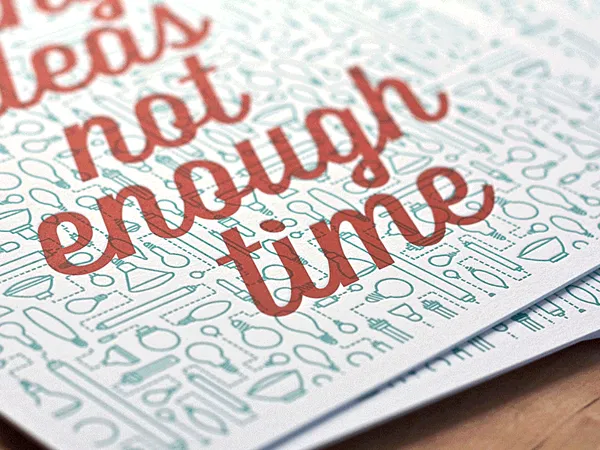 deas
not
enough
time